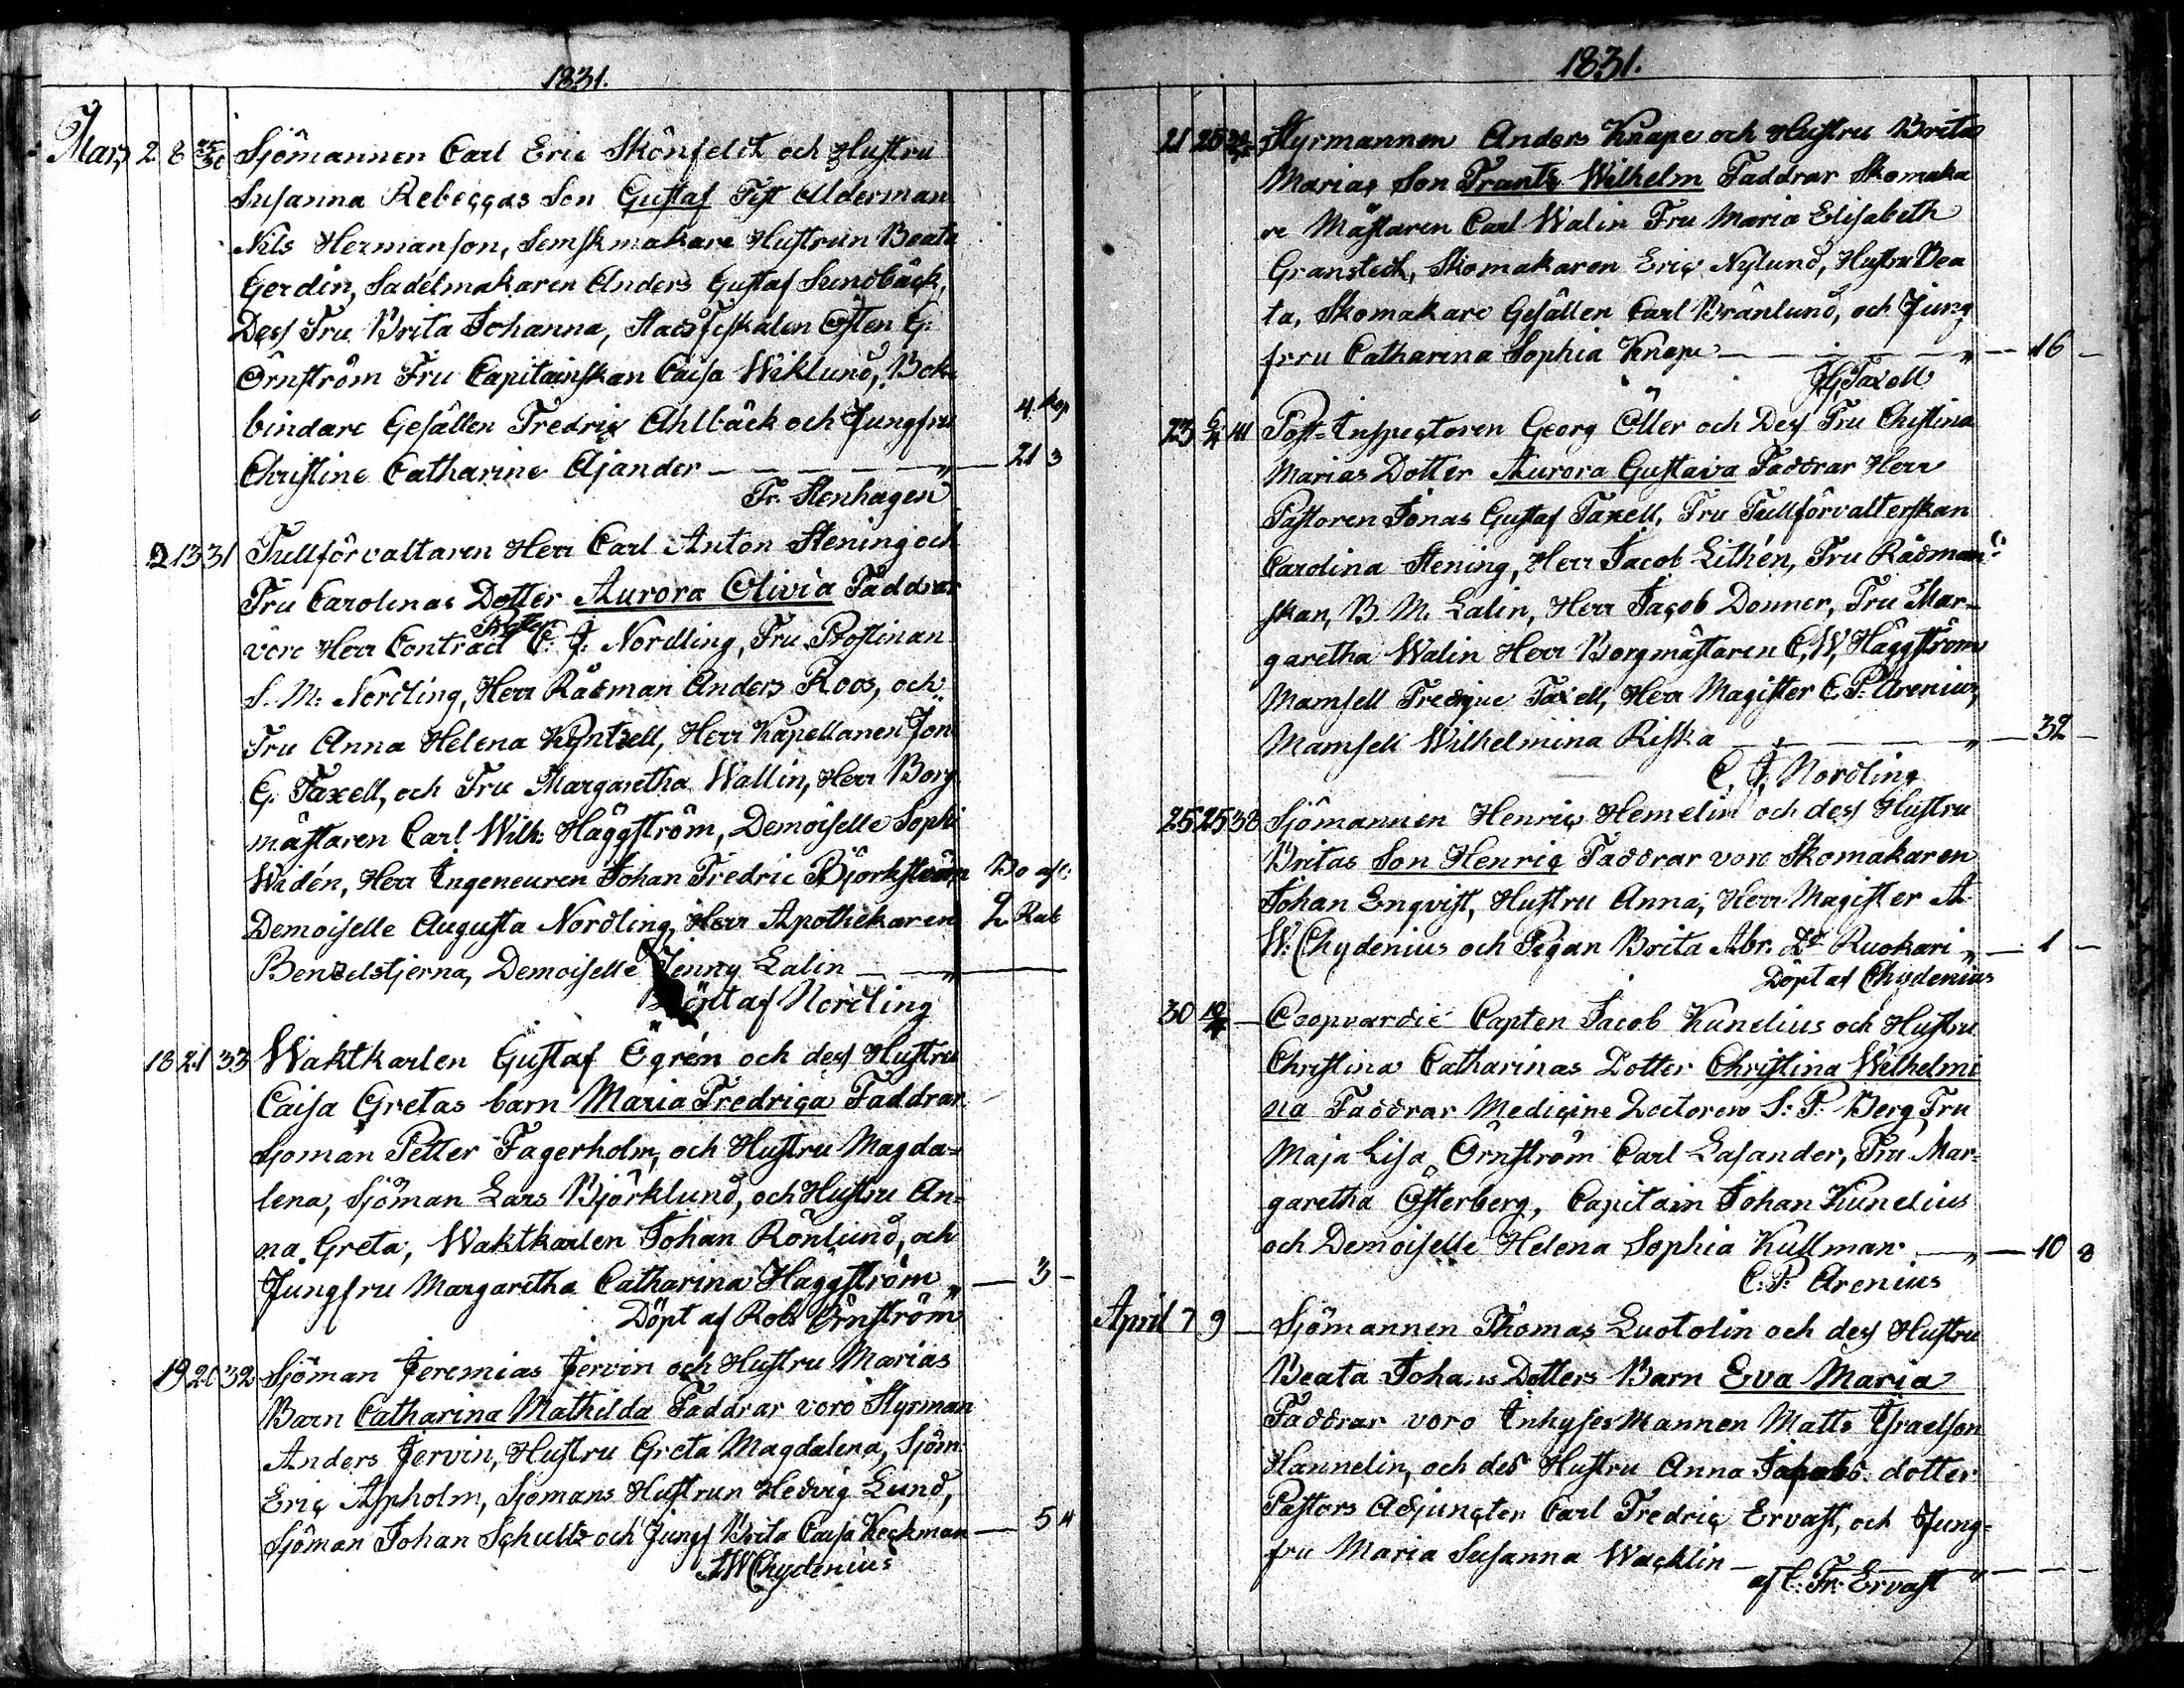 1831.
Mars 2 8 25/30 Sjömannen Carl Eric Skönfeldt och Hustru
Susanna Rebeccas Son Gustaf Test Alderman
Nils Hermanson, Semskmakare Hustrun Beata
Gerdin, Sadelmakaren Anders Gustaf Sundbäck,
Dess Fru Brita Johanna, Stadsfiskalen Östen G.
Örnström Fru Capitainskan Caisa Wiklund, Bok
bindare Gesällen Fredric Ahlbäck och Jungfru 4. Kop
Christine Catharine Ajander — 21 3
Fr. Stenhagen
2 13 31 Tullförvaltaren Herr Carl Anton Stening och
Fru Carolinas Dotter Aurora Olivia Faddrar
voro Herr Contract Prosten C. J. Nordling, Fru Prostinan
S. M. Nordling, Herr Rådman Anders Roos, och
Fru Anna Helena Kyntzell, Herr Kapellanen Jon
G. Taxell, och Fru Margaretha Wallin, Herr Borg
mästaren Carl Wilh: Häggström, Demoiselle Sophi
Widén, Herr Ingeneuren Johan Fredric Björkström Bo ass:
Demoiselle Augusta Nordling, Herr Apothekaren 2 Rub
Benzelstjerna, Demoiselle Jenny Lalin —
Döpt af Nordling
18 21 33 Waktkarlen Gustaf Ögrén och dess Hustru
Caisa Gretas barn Maria Fredrica Faddrar
Sjoman Petter Fagerholm, och Hustru Magda=
lena, Sjöman Lars Björklund, och Hustru An=
na Greta, Waktkarlen Johan Rönlund, och
Jungfru Margaretha Catharina Haggström „ — 3 —
Döpt af Rob. Örnström
19 20 32 Sjöman Jeremias Jervin och Hustru Marias
Barn Catharina Mathilda Faddrar voro Styrman
Anders Jervin, Hustru Greta Magdalena, Sjöm
Eric Aspholm, Sjomans Hustrun Hedvig Lund,
Sjöman Johan Schultz och Jungf Brita Caisa Keckman — 5 4
A W Chydenius
1831.
21 25 Styrmannen Anders Knape och Hustru Britas
Marias Son Frants Wilhelm Faddrar Skomaka
re Mästaren Carl Walin Fru Maria Elisabeth
Granstedt, Skomakaren Eric Nylund, Hustru Bea
ta, Skomakare Gesällen Carl Brånlund, och Jung
fru Catharina Sophia Knape — „ — 16 —
J G Taxell
23 6/4 41 Post=Inspectoren Georg Öller och Dess Fru Christina
Marias Dotter Aurora Gustava Faddrar Herr
Pastoren Jonas Gustaf Taxell, Fru Tullförvalterskan
Carolina Stening, Herr Jacob Lithén, Fru Rådman=
skan, B. M. Lalin, Herr Jacob Donner, Fru Mar-
garetha Walin Herr Borgmästaren C. W. Häggström
Mamsell Fredrique Taxell, Herr Magister C. P. Arenius,
Mamsell Wilhelmina Riska — „ — 32 —
C. J. Nordling
25 25 38 Sjömannen Henric Hemelin och dess Hustru
Britas Son Henric Faddrar voro Skomakaren
Johan Enqvist, Hustru Anna, Herr Magister A.
W. Chydenius och Pigan Brita Abr. Dr Ruokari „ — 1 —
Döpt af Chydenius
30 10/4 — Coopvardie Capten Jacob Kunelius och Hustru
Christina Catharinas Dotter Christina Wilhelmi
na Faddrar Medicine Doctoren S. P. Berg Fru
Maja Lisa Örnström Carl Lasander, Fru Mar=
garetha Österberg, Capitain Johan Kunelius
och Demoiselle Helena Sophia Kullman — „ — 10 8
C. P. Arenius
April 7 9 — Sjömannen Thomas Luotolin och dess Hustru
Beata Johans Dotters Barn Eva Maria
Faddrar voro Inhyses Mannen Matts Israelson
Hannelin, och des Hustru Anna Jacobs. dotter
Pastors Adjuncten Carl Fredric Ervast, och Jung=
fru Maria Susanna Wacklin —
af C. Fr. Ervast „ —